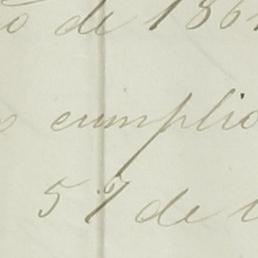 de 186
cumplio
57 de